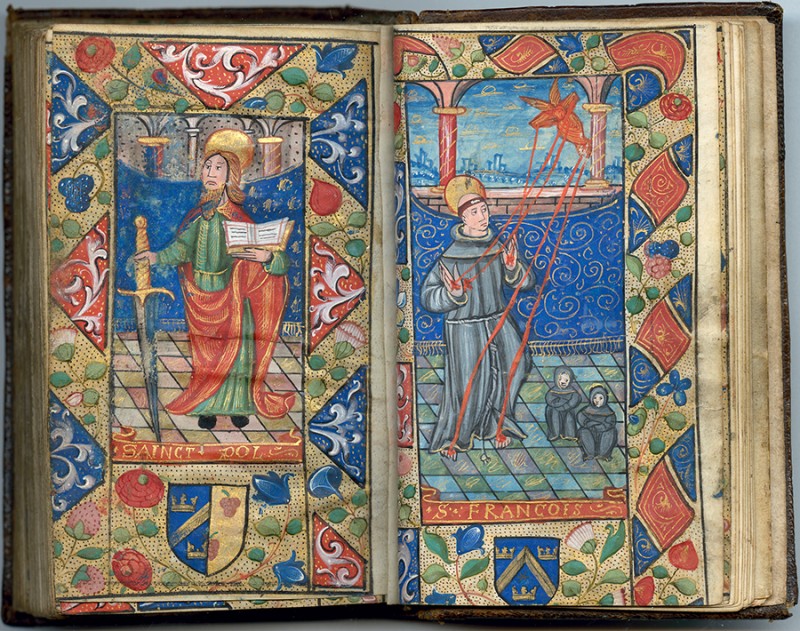 SAINCT POL
S. FRANCOIS